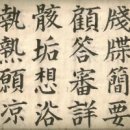 牋牒簡要
顧答審詳
骸垢想浴
執熱願涼